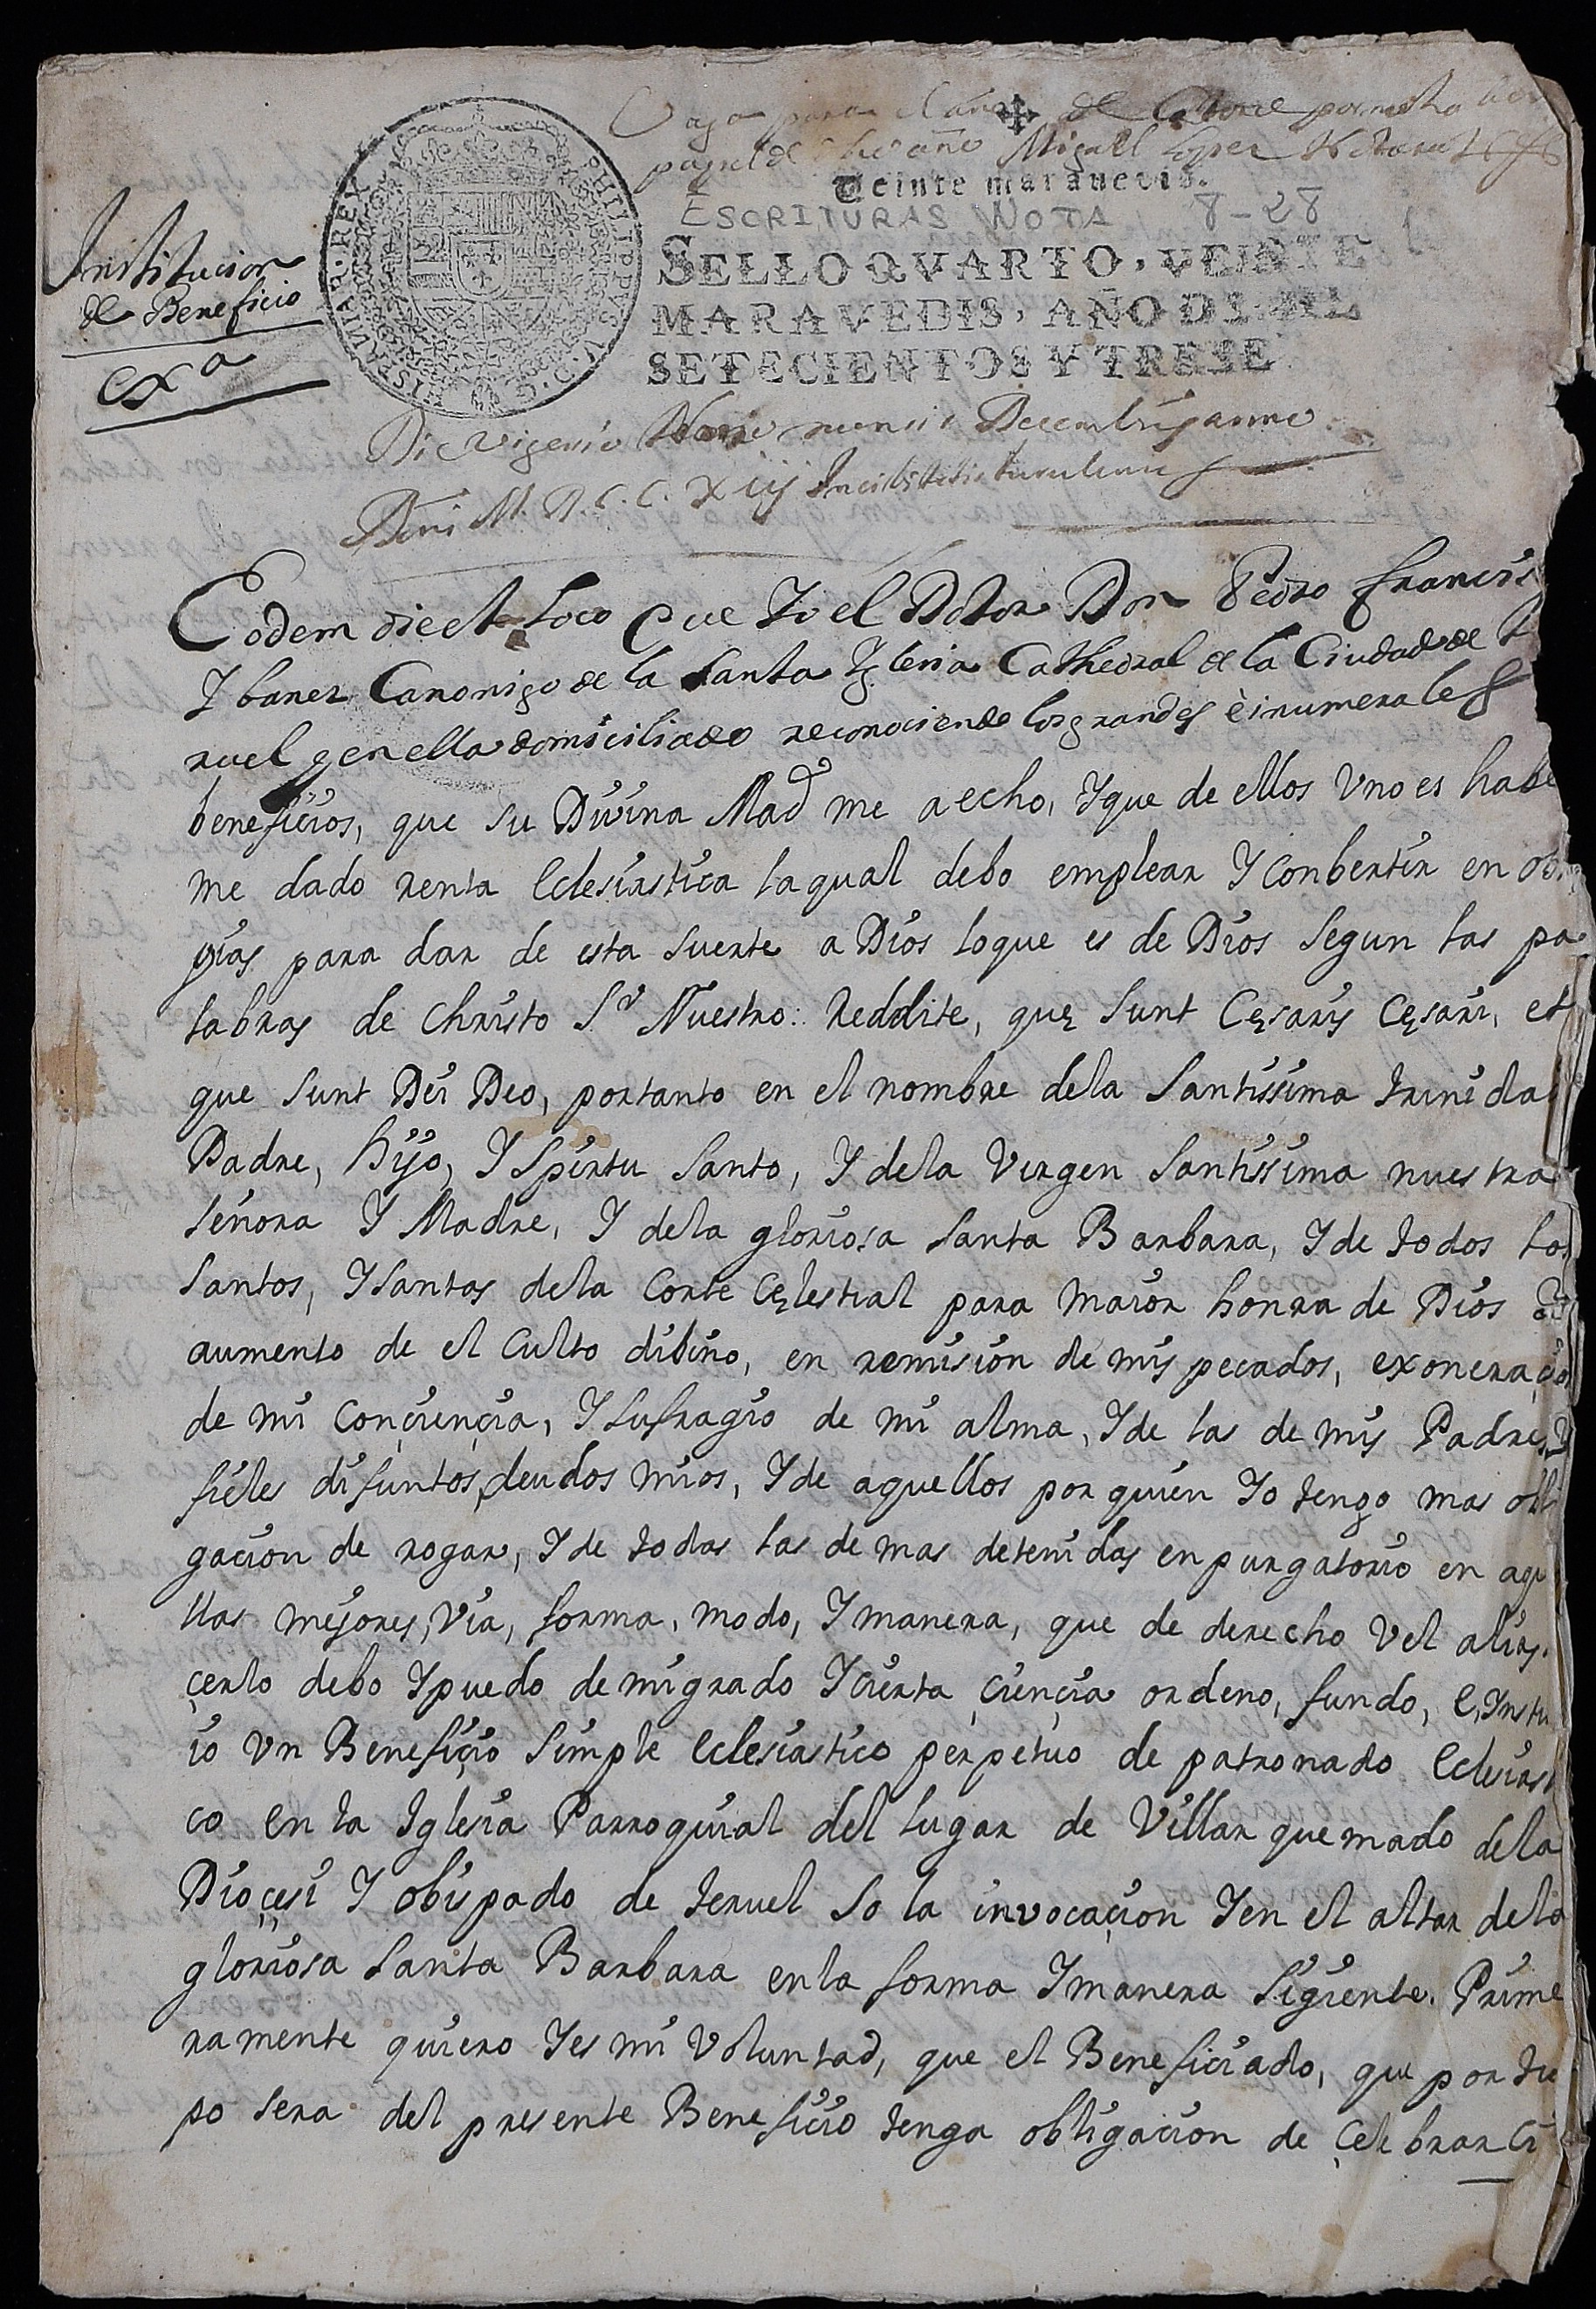 Valga para el año de Catorce por no haber
papel de dho año Miguel Lopez Notario
Veinte marauedis.
ESCRITURAS NOTA 8-28
SELLO QVARTO, VEINTE
MARAVEDIS, AÑO DE MIL
SETECIENTOS Y TRESE
PHILIPPVS V. D. G. HISPANIAR. REX
Institucion
de Beneficio
exa
Die Vigessio Nono mensis Decembris anno
Dñi M.D.C.C.Xiij In Civitate turuleum
Eodem die et Loco Que Io el Dotor Don Pedro Francis
Ybanez Canonigo de la santa Yglesia Cathedral de la Ciudad de T
ruel y en ella domiciliado reconociendo los grandes è inumerales
beneficios, que su Divina Mad me a echo, Y que de ellos Vno es habe
me dado renta Eclesiastica la qual debo emplear Y Conbertir en ob
pias para dar de esta suerte a Dios lo que es de Dios Segun las pa
labras de Christo Sr Nuestro: Reddite, quę sunt Cęsaris Cęsari, et
que sunt Dei Deo, portanto en el nombre dela Santissima trinida
Padre, hijo, Y Spiritu Santo, Y dela Virgen Santissima nuestra
Señora Y Madre, Y dela gloriosa Santa Barbara, Y de todos los
Santos, Y santas dela Corte Cęlestial para maior honra de Dios
aumento de el Culto dibino, en remision de mis pecados, exoneraçio
de mi Conçiençia, Y sufragio de mi alma, Y de las de mis Padres, Y
fieles difuntos, deudos mios, Y de aquellos por quien Io tengo mas obli
gacion de rogar, Y de todas las de mas detenidas en purgatorio en aque
llas mejores, Via, forma, modo, Y manera, que de derecho Vel alias.
çerlo debo Y puedo de mi grado Y cierta çiençia ordeno, fundo, e, Instit
io Vn Benefiçio Simple Eclesiastico perpetuo de patronado Eclesiast
co en la Iglesia Parroquial del lugar de Villar quemado dela
Dioçesi Y obispado de teruel So la invocaçion Y en el altar dela
gloriosa Santa Barbara en la forma Y manera Sigiente. Prime
ramente quiero Y es mi Voluntad, que el Beneficiado, que por tie
po sera del presente Beneficio tenga obligacion de çelebrar Ci